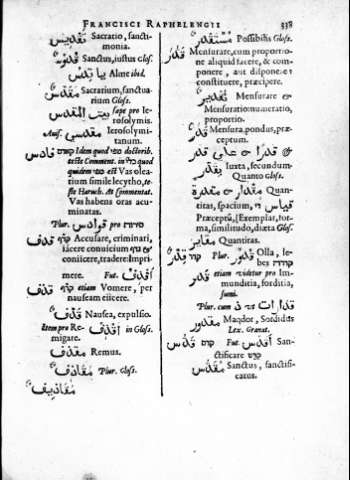 FRANCISCI RAPHELENGII 338
تقديس Sacratio, sancti-
monia.
قدوس Sanctus, iustus Glos.
يا قدس Alme ibid.
مقدس Sacrarium, sanctua-
rium Gloss.
بيت المقدس sæpe pro Ie-
rosolymis.
Aut. مقدسي Ierosolymi-
tanum.
قادس Idem quod doctorib.
teste Comment. in quod
quidem est Vas olea-
rium simile lecytho, te-
ste Haruch. At Commentat.
Vas habens oras acu-
minatas.
Plur. قوادس pro
قدف Accusare, criminari,
iacere conuicium
coniicere, tradere: Impri
mere. Fut. اقدف
قدف etiam Vomere, per
nauseam eiicere.
قدف Nausea, expulsio.
Item pro Re- اقدف in Gloss.
migare.
مقدف Remus.
مقاديف Plur. Gloss.
مقاذيف
مستقدر Possibilis Gloss.
قدر Mensurare, cum proportio-
ne aliquid facere, & com-
ponere, aut disponere
constituere, præcipere.
تقدير Mensurare &
Mensuratio: numeratio,
proportio.
قدر Mensura, pondus, præ-
ceptum.
قدرا على قدر &
بقدر Iuxta, secundum
Quanto Gloss.
مقدار مقدرة Quan-
titas, spacium, قياس
Præceptū, (Exemplar, for-
ma, similitudo, dixta Glos.
مقادير Quantitas.
قدر Plur. قدور Olla, le-
bes
قدر etiam videtur pro Im-
munditia, sorditia,
fumi.
Plur. cum ات قدرات
مقدور Maqdor, Sordidus
Lex. Granat.
قدس Fut. اقدس San-
ctificare קדש
مقدس Sanctus, sanctifi-
catus.